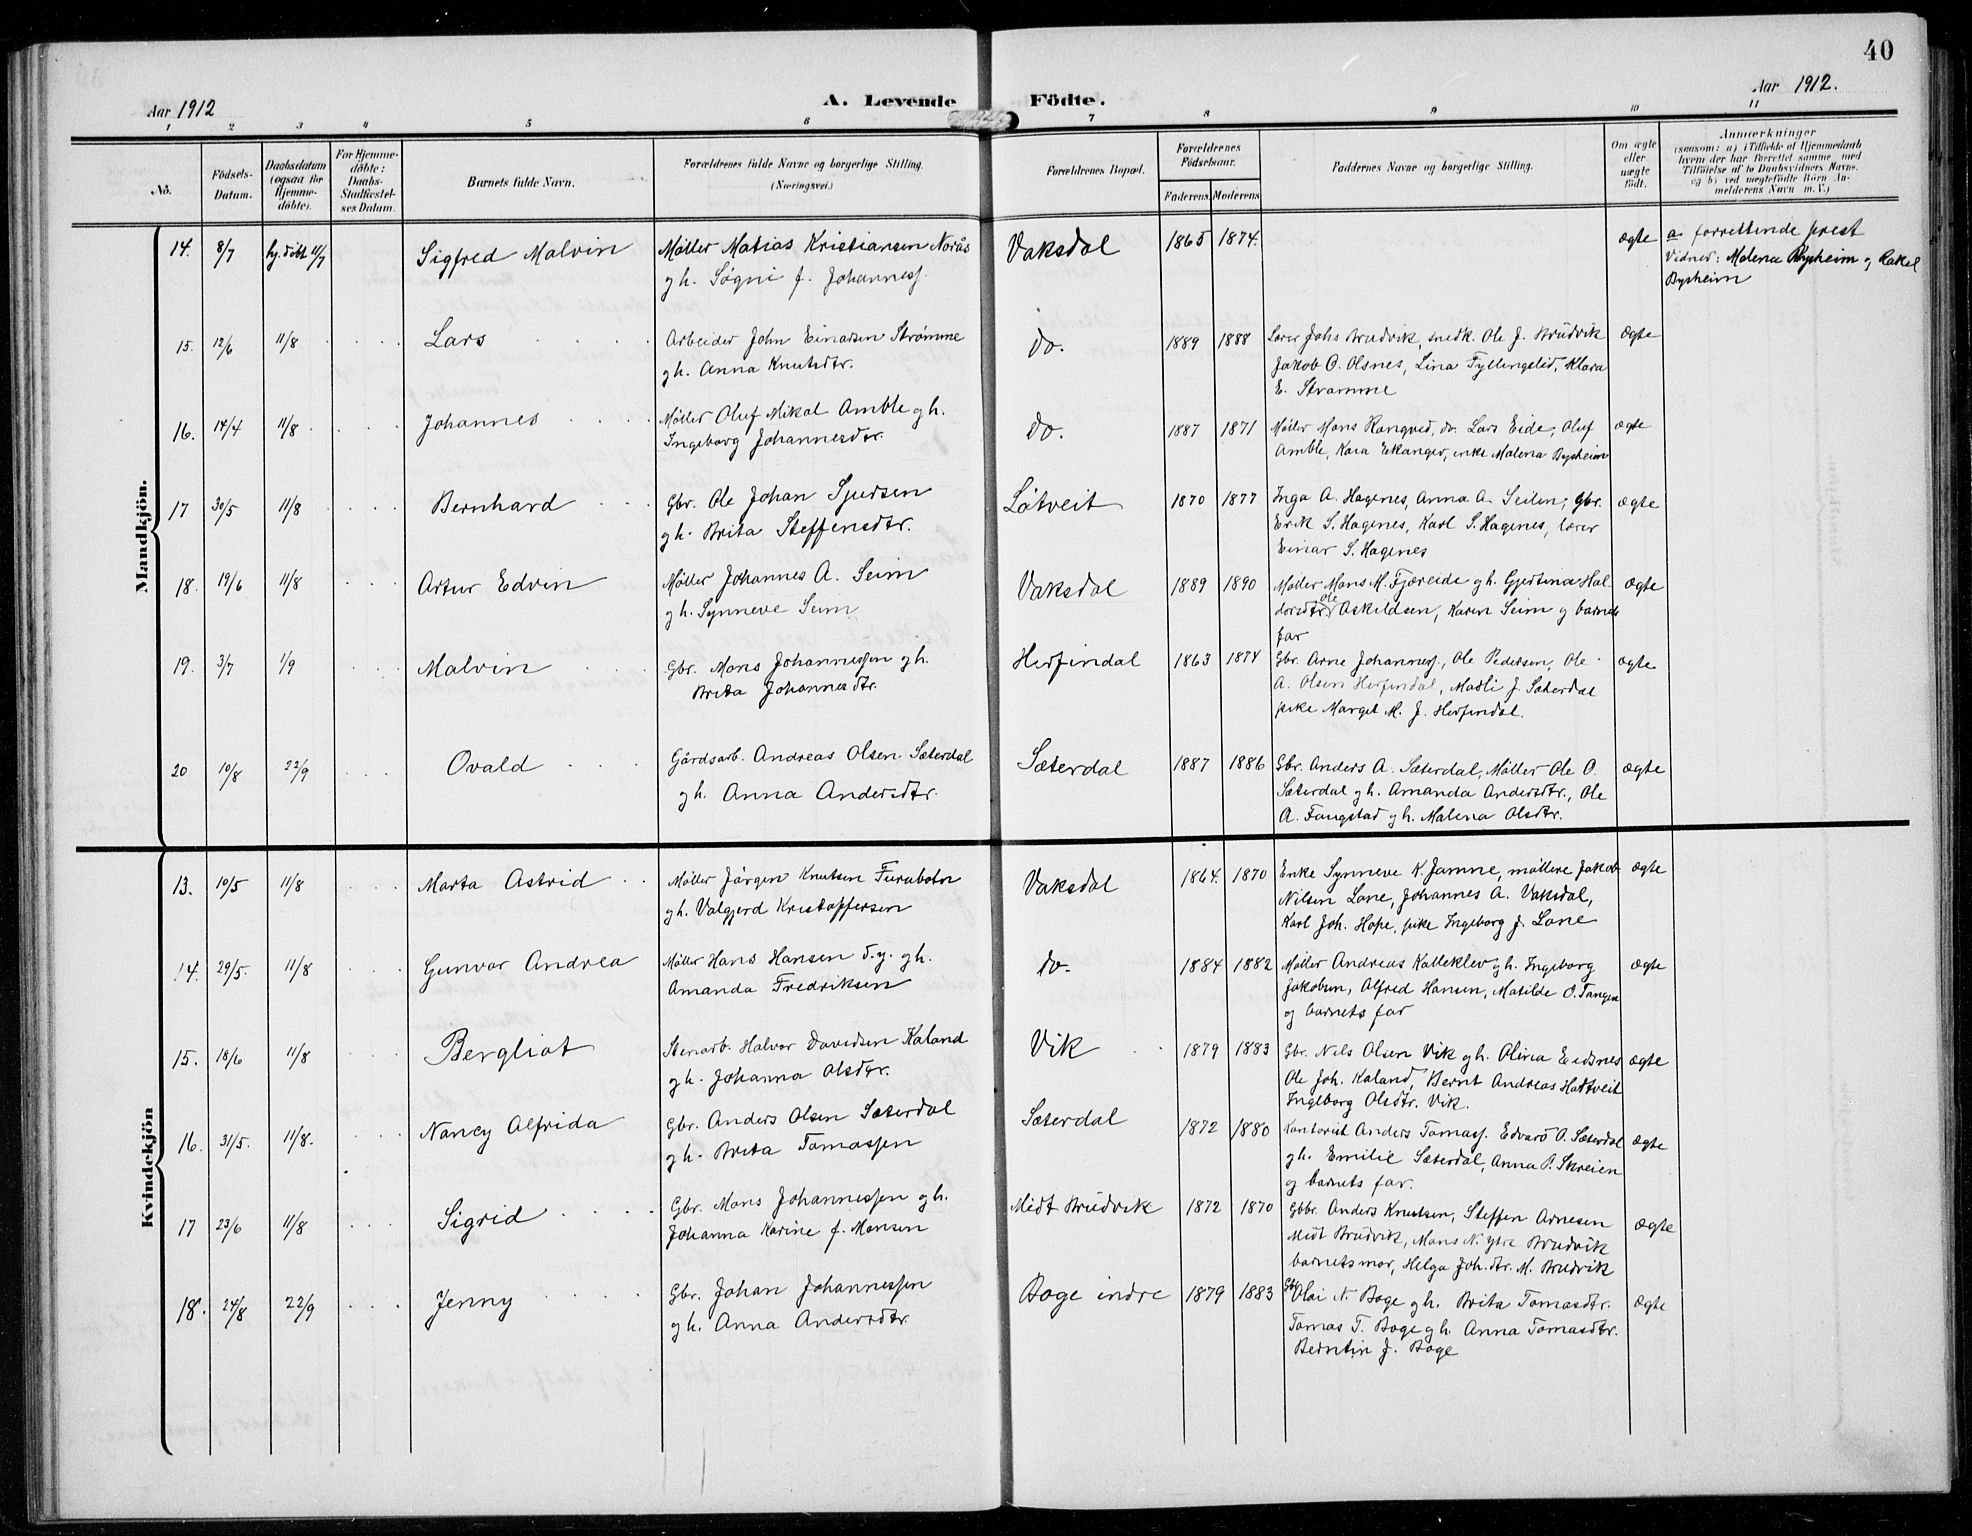 40
Aar 1912
A. Levende Födte.
Aar 1912.
1 2 3 4 5 6 7 8 9 10 11
No.
Födsels-Datum.
Daabsdatum (ogsaa for Hjemme-döbte).
For Hjemme-döbte: Daabs-Stadfæstel-ses Datum.
Barnets fulde Navn.
Forældrenes fulde Navne og borgerlige Stilling.
(Næringsvei.)
Forældrenes Bopæl.
Forældrenes Födselsaar.
Faderens. Moderens.
Faddernes Navne og borgerlige Stilling.
Om ægte eller uægte födt.
Anmærkninger
(saasom: a) i Tilfælde af Hjemmedaab
hvem der har forrettet samme med
Tilföielse af to Daabsvidners Navne.
og b) ved uægtefödte Börn An-
melderens Navn m. V.)
Mandkjön.
14. 8/7 hj. döbt 11/7 Sigfred Malvin Möller Matias Kristiansen Norås Vaksdal 1865 1874. ægte a forrettende prest
gh. Søgni f. Johanness. Vidner: Malena Bysheim og Rakel
Bysheim
15. 12/6 11/8 Lars Arbeider John Einarsen Strømme do. 1889 1888 Lærer Johs Brudvik, snedk. Ole J. Brudvik ægte
gh. Anna Knutsdtr. Jakob O. Olsnes, Lina Fyllingslid, Klara
E. Strømme
16. 14/4 11/8 Johannes Möller Oluf Mikal Amble gh. do. 1887 1871 Möller Mons Ranqved, do. Lars Eide, Oluf ægte
Ingeborg Johannesdtr. Amble, Kaia Ekanger, enke Malena Bysheim
17 30/5 11/8 Bernhard Gbr. Ole Johan Sjursen Lötveit 1870 1877 Inga A. Hagenes, Anna A. Seilen, Gbr. ægte
gh. Brita Steffensdtr. Erik S. Hagenes, Karl S. Hagenes, lærer
Einar S. Hagenes
18. 19/6 11/8 Artur Edvin Möller Johannes A. Seim Vaksdal 1889 1890 Möller Mons M. Fjæreide gh. Gjertina Hal ægte
gh. Synneve Seim dorsdtr. Ole Askildsen, Karen Seim og barnets
far
19. 3/7 1/9 Malvin Gbr. Mons Johannessen gh. Herfindal 1863 1874 Gbr. Arne Johanness., Ole Pedersen, Ole ægte
Brita Johannesdtr. A. Olsen Herfindal, Madli J. Sæterdal
pike Marget M. J. Herfindal.
20 10/8 22/9 Ovald Gårdsarb. Andreas Olsen Sæterdal Sæterdal 1887 1886 Gbr. Anders A. Sæterdal, Möller Ole O. ægte
gh. Anna Andersdtr. Sæterdal gh. Amanda Andersdtr., Ole
A. Fangstad gh. Malena Olsdtr.
Kvindekjön
13. 10/5 11/8 Marta Astrid Möller Jörgen Knutsen Furubotn Vaksdal 1864. 1870 Enke Synneve K. Jamne, möllere Jakob ægte
gh. Valgjerd Kristoffersen Nilsen Lone, Johannes A. Vaksdal,
Karl Joh. Hope, pike Ingeborg J. Lone
14. 29/5. 11/8 Gunvor Andrea Möller Hans Hansen d.y. gh. do. 1884 1882 Möller Andreas Kalleklev gh. Ingeborg ægte
Amanda Fredriksen Jakobsen, Alfred Hansen, Matilde O. Tangen
og barnets far
15. 18/6 11/8 Bergliot Stenarb. Halvor Davidsen Kaland Vik 1879 1883 Gbr. Nils Olsen Vik gh. Olina Eidsnes ægte
gh. Johanna Olsdtr. Ole Joh. Kaland, Bernt Andreas Hattveit
Ingeborg Olsdtr. Vik.
16. 31/5. 11/8. Nancy Alfrida Gbr. Anders Olsen Sæterdal Sæterdal 1872 1880 Kontorist Anders Tomass. Edvard O. Sæterdal ægte
gh. Brita Tomassen gh. Emilie Sæterdal, Anna P. Skreien
og barnets far.
17 23/6 11/8 Sigrid Gbr. Mons Johannessen gh. Midt Brudvik 1872 1870 Gbbr. Anders Knutsen, Steffen Arnesen ægte
Johanna Karine f. Monsen Midt Brudvik, Mons N. Ytre Brudvik
barnetsmor, Helga Joh.dtr. M. Brudvik
18. 24/8 22/9 Jenny Gbr. Johan Johannessen Boge indre 1879 1883 Gbr Olai N. Boge gh. Brita Tomasdtr. ægte
gh. Anna Andersdtr. Tomas T. Boge gh. Anna Tomasdtr.
Berntin J. Boge